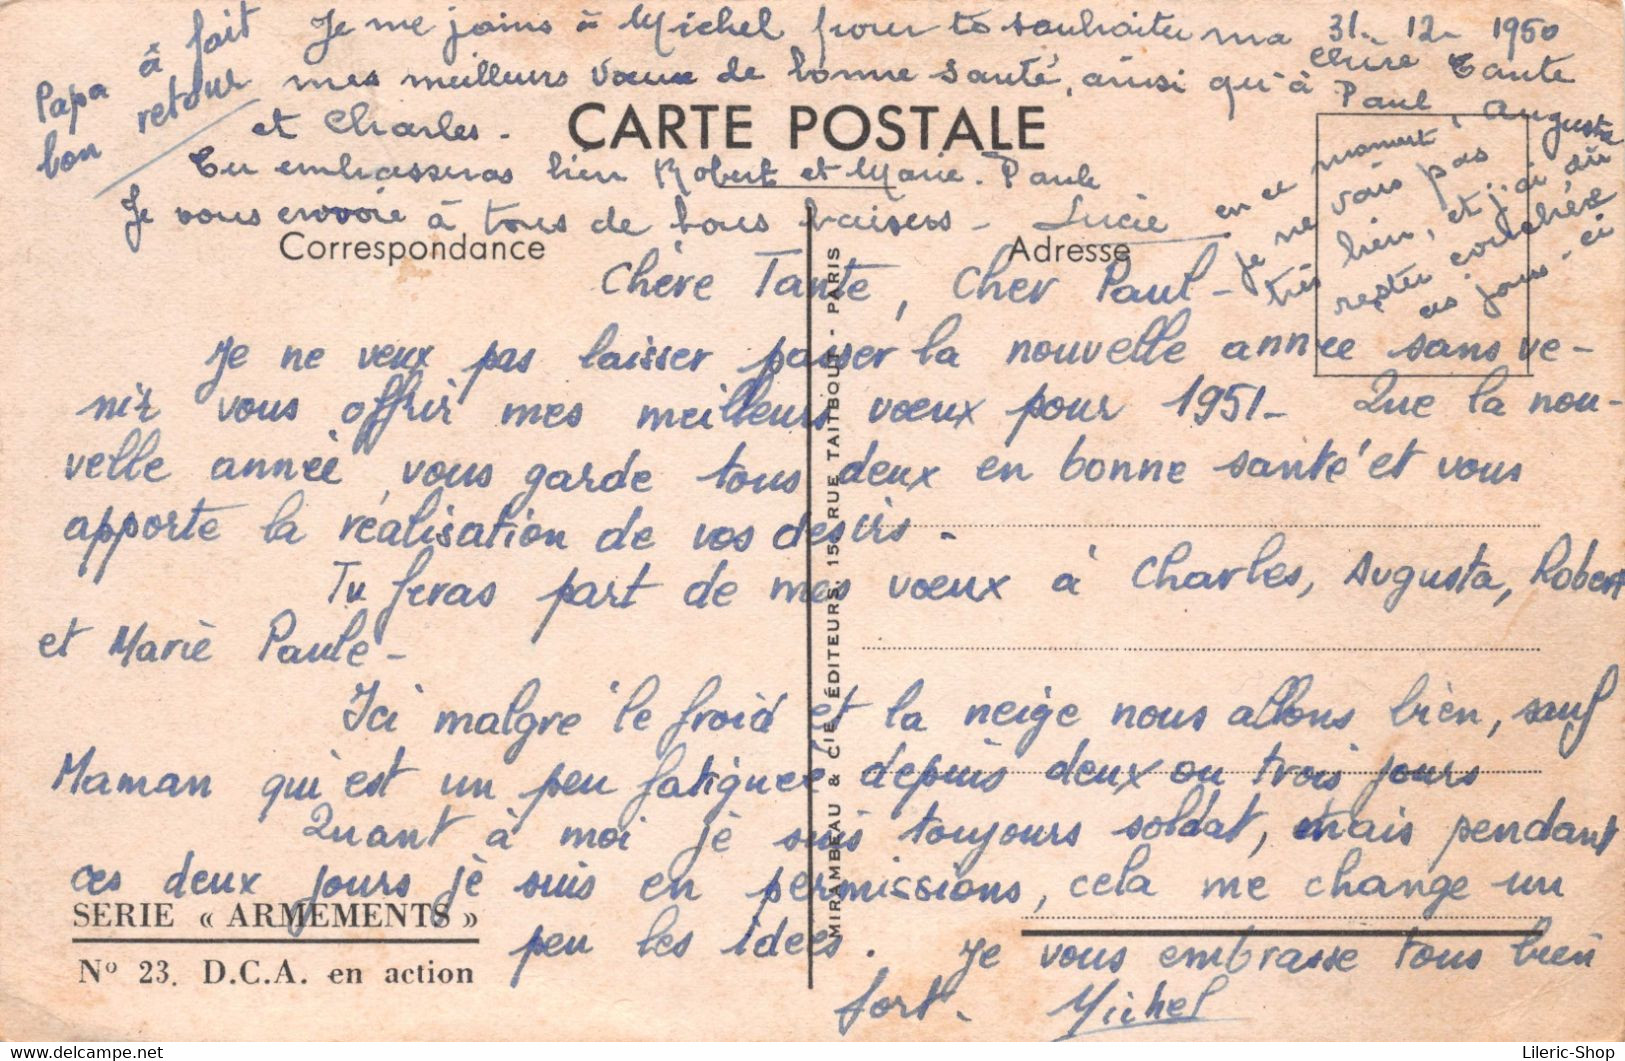 Papa à fait
bon retour
31. 12. 1950
Je me joins à Michel pour te souhaiter ma chère Tante
mes meilleurs vœux de bonne santé, ainsi qu'à Paul, Augusta
et Charles.
CARTE POSTALE
Tu embrasseras bien Robert et Marie-Paule
Je vous envoie à tous de bons baisers - Lucie
en ce moment,
je ne vais pas
très bien, et j'ai dû
rester couchée
ces jours-ci
Correspondance
Adresse
Chère Tante, Cher Paul -
Je ne veux pas laisser passer la nouvelle année sans ve-
nir vous offrir mes meilleurs vœux pour 1951 - Que la nou-
velle année vous garde tous deux en bonne santé et vous
apporte la réalisation de vos desirs -
Tu feras part de mes vœux à Charles, Augusta, Robert
et Marie Paule -
Ici malgré le froid et la neige nous allons bien, sauf
Maman qui est un peu fatiguée depuis deux ou trois jours
Quant à moi je suis toujours soldat, mais pendant
ces deux jours je suis en permissions, cela me change un
peu les idées. Je vous embrasse tous bien
fort. Michel
SERIE « ARMEMENTS »
N° 23. D.C.A. en action
MIRAMBEAU & CIE, ÉDITEURS, 15, RUE TAITBOUT - PARIS
Lileric-Shop